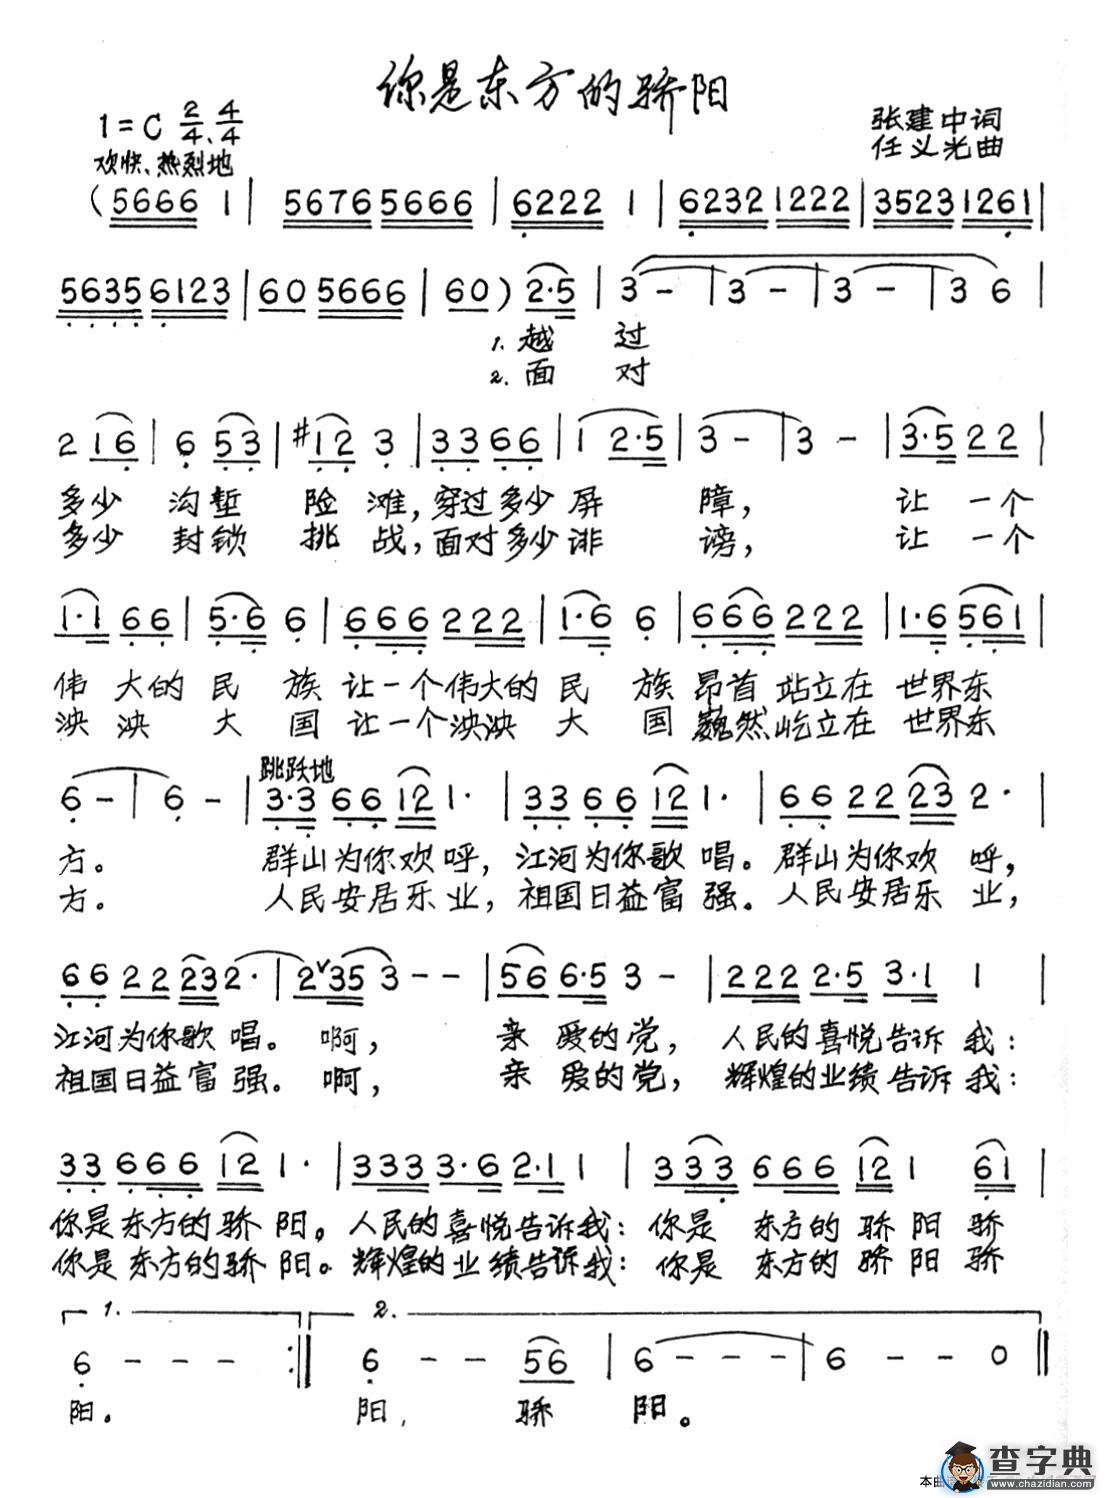 你是东方的骄阳
1=C 2/4、4/4
张建中词
任义光曲
欢快、热烈地
(5666 1 | 5676 5666 | 6222 1 | 6232 1222 | 3523 1261 |
5635 6123 | 60 5666 | 60) 2·5 | 3 - | 3 - | 3 - | 3 6 |
1. 越 过
2. 面 对
2 16 | 6 53 | #12 3 | 33 66 | 1 2·5 | 3 - | 3 - | 3·5 22 |
多少 沟堑 险 滩,穿过多少屏 障, 让 一个
多少 封锁 挑 战,面对多少诽 谤, 让 一个
1·1 66 | 5·6 6 | 666 222 | 1·6 6 | 666 222 | 1·6 561 |
伟 大的 民 族 让一个伟大的 民 族 昂首 站立在 世界东
泱 泱 大 国 让一个泱泱 大 国 巍然屹立在 世界东
跳跃地
6 - | 6 - | 3·3 66 12 1· | 33 66 12 1· | 66 22 23 2· |
方。 群山为你欢 呼,江河为你歌 唱。群山为你欢 呼,
方。 人民安居乐 业,祖国日益富 强。人民安居乐 业,
66 22 23 2· | 2∨35 3 - - | 56 6·5 3 - | 222 2·5 3·1 1 |
江河为你歌 唱。 啊, 亲 爱的党, 人民的喜悦告诉 我:
祖国日益富 强。 啊, 亲 爱的党, 辉煌的业绩告诉 我:
33 666 12 1· | 333 3·6 2·1 1 | 333 666 12 1 61 |
你是东方的骄 阳。人民的喜悦告诉我:你是 东方的 骄 阳 骄
你是东方的骄 阳。辉煌的业绩告诉我:你是 东方的 骄 阳 骄
1. 2.
6 - - - :‖ 6 - - 56 | 6 - - - | 6 - - 0 ‖
阳。 阳, 骄 阳。
查字典
www.chazidian.com
本曲